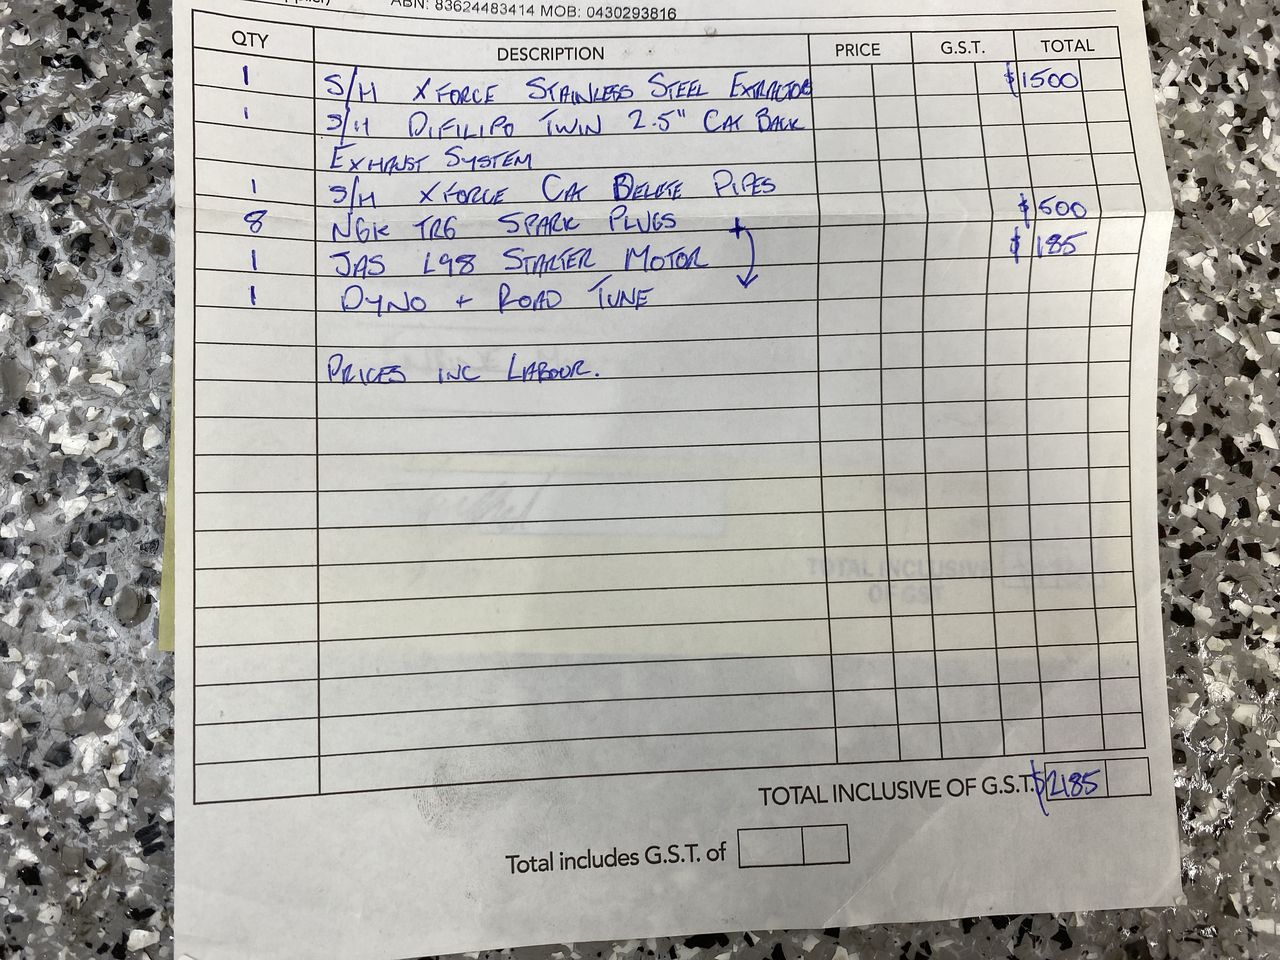 ABN: 83624483414 MOB: 0430293816
QTY DESCRIPTION PRICE G.S.T. TOTAL
1 S/H XFORCE STAINLESS STEEL EXTRACTOR $1500
1 S/H DIFILIPO TWIN 2.5" CAT BACK
EXHAUST SYSTEM
1 S/H XFORCE CAT DELETE PIPES
8 NGK TR6 SPARK PLUGS + $500
1 JAS L98 STARTER MOTOR $185
1 DYNO + ROAD TUNE
PRICES INC LABOUR.
TOTAL INCLUSIVE
OF GST
TOTAL INCLUSIVE OF G.S.T. $2185
Total includes G.S.T. of